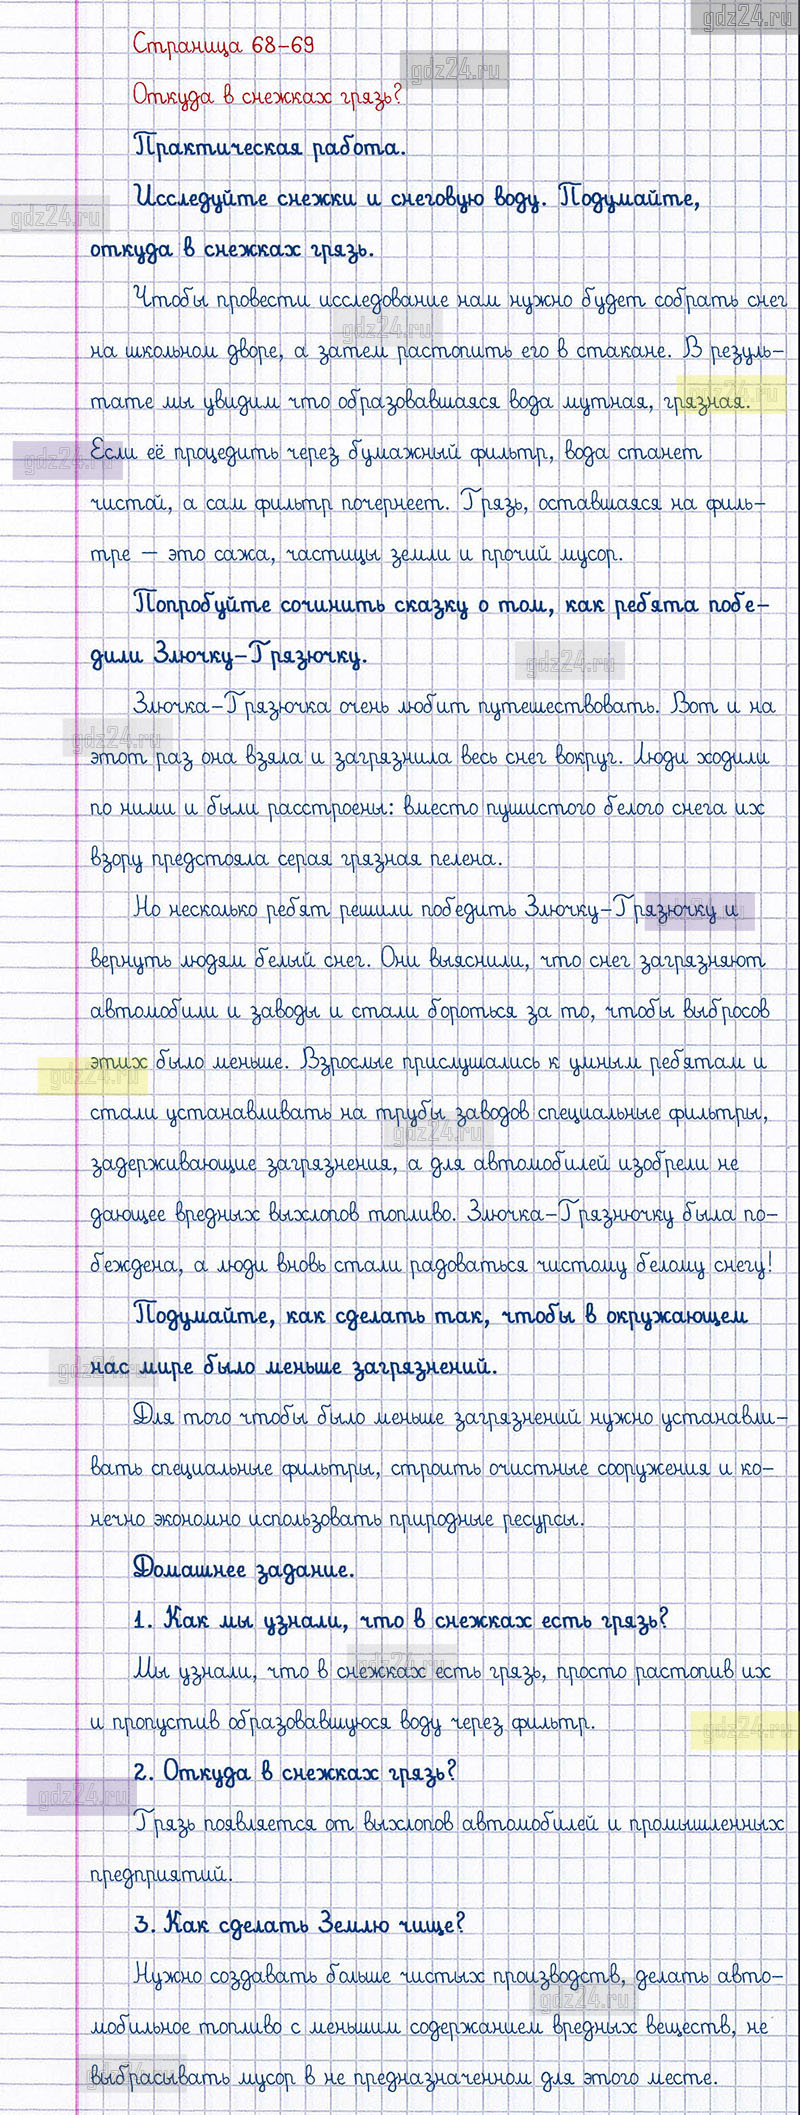 gdz24.ru
Страница 68-69
gdz24.ru
Откуда в снежках грязь?
Практическая работа.
Исследуйте снежки и снеговую воду. Подумайте,
gdz24.ru
откуда в снежках грязь.
Чтобы провести исследование нам нужно будет собрать снег
gdz24.ru
на школьном дворе, а затем растопить его в стакане. В резуль-
gdz24.ru
тате мы увидим что образовавшаяся вода мутная, грязная.
Если её процедить через бумажный фильтр, вода станет
gdz24.ru
чистой, а сам фильтр почернеет. Грязь, оставшаяся на филь-
тре – это сажа, частицы земли и прочий мусор.
Попробуйте сочинить сказку о том, как ребята побе-
дили Злючку-Грязючку.
gdz24.ru
Злючка-Грязючка очень любит путешествовать. Вот и на
gdz24.ru
этот раз она взяла и загрязнила весь снег вокруг. Люди ходили
по ними и были расстроены: вместо пушистого белого снега их
взору предстояла серая грязная пелена.
Но несколько ребят решили победить Злючку-Грязючку и
вернуть людям белый снег. Они выяснили, что снег загрязняют
автомобили и заводы и стали бороться за то, чтобы выбросов
этих было меньше. Взрослые прислушались к умным ребятам и
gdz24.ru
стали устанавливать на трубы заводов специальные фильтры,
gdz24.ru
задерживающие загрязнения, а для автомобилей изобрели не
дающее вредных выхлопов топливо. Злючка-Грязнючку была по-
беждена, а люди вновь стали радоваться чистому белому снегу!
Подумайте, как сделать так, чтобы в окружающем
нас мире было меньше загрязнений.
gdz24.ru
Для того чтобы было меньше загрязнений нужно устанавли-
вать специальные фильтры, строить очистные сооружения и ко-
нечно экономно использовать природные ресурсы.
Домашнее задание.
1. Как мы узнали, что в снежках есть грязь?
gdz24.ru
Мы узнали, что в снежках есть грязь, просто растопив их
и пропустив образовавшуюся воду через фильтр.
gdz24.ru
2. Откуда в снежках грязь?
gdz24.ru
Грязь появляется от выхлопов автомобилей и промышленных
предприятий.
3. Как сделать Землю чище?
Нужно создавать больше чистых производств, делать авто-
gdz24.ru
мобильное топливо с меньшим содержанием вредных веществ, не
выбрасывать мусор в не предназначенном для этого месте.
gdz24.ru